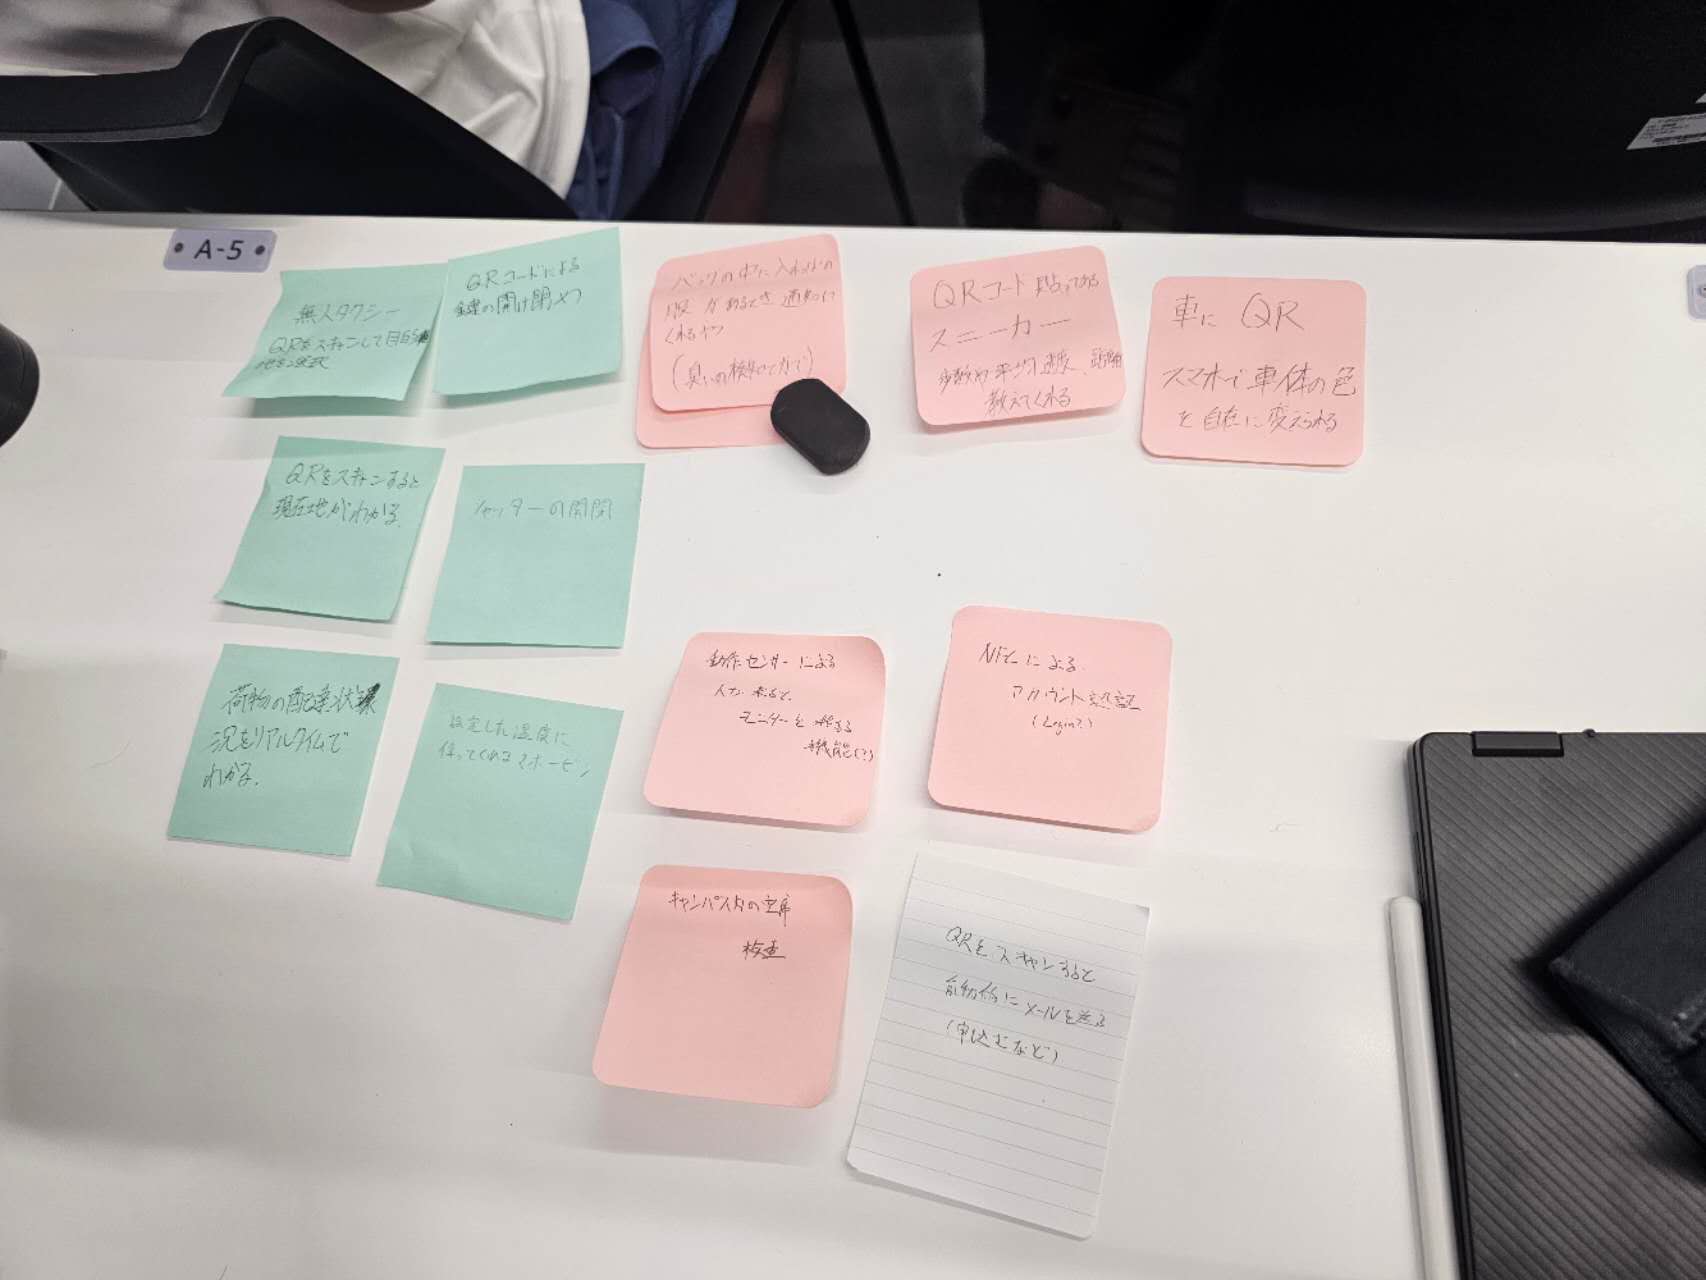 A-5
無人タクシー
QRをスキャンして目的
地を選択
QRコードによる
鍵の開け閉めつ
バッグの中に入れっぱの
服があるとき通知して
くれるやつ
(臭いの検知とかで)
QRコード貼ってある
スニーカー
歩数や平均速度、距離
教えてくれる
車に QR
スマホで車体の色
を自在に変えられる
QRをスキャンすると
現在地がわかる。
シャッターの開閉
荷物の配達状
況をリアルタイムで
わかる。
設定した温度に
保ってくれるマホービン
動作センサーによる
人が来ると、
モニターを
機能(?)
NFCによる
アカウント認証
(Login?)
キャンパス内の空席
検査
QRをスキャンすると
自動的にメールを送る
(申込むなど)